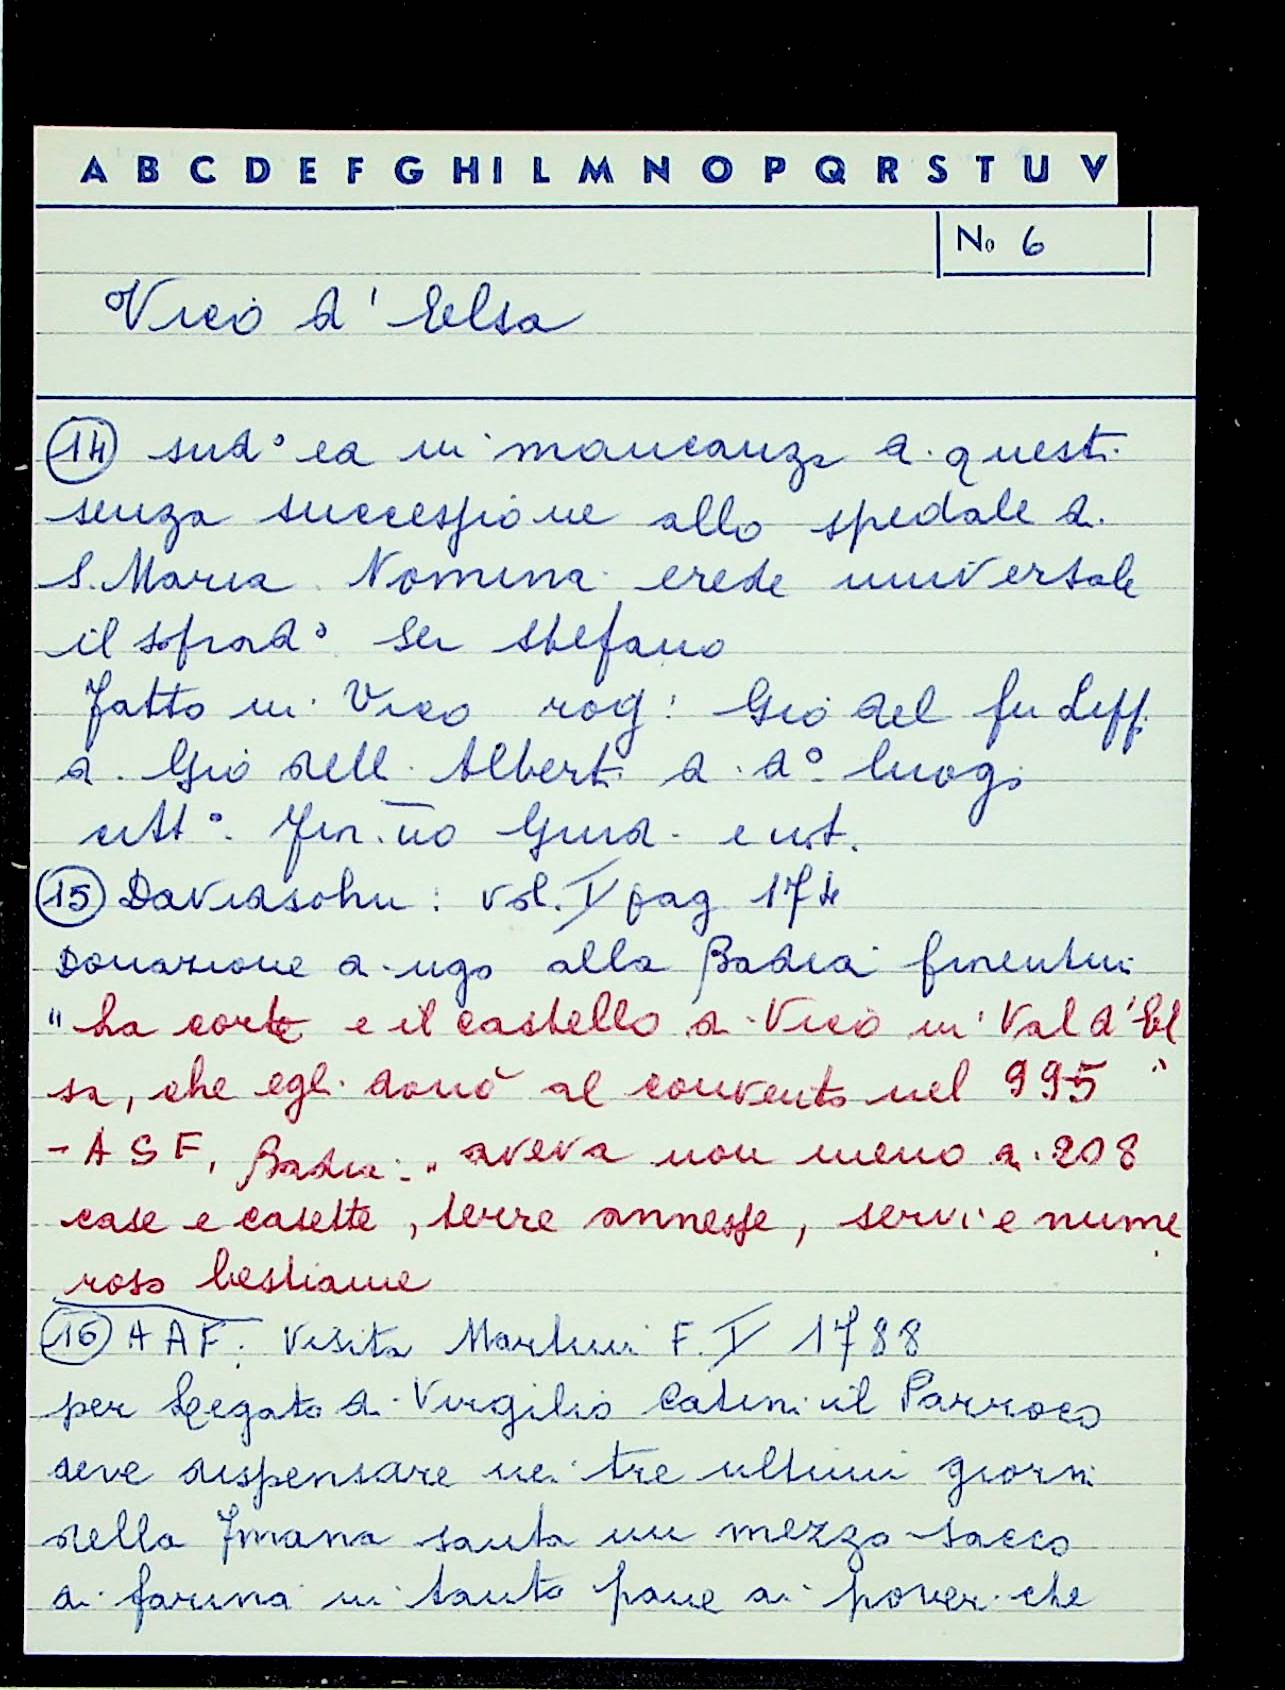 A B C D E F G H I L M N O P Q R S T U V
No 6
Vico d'Elsa
14 sud° ed in mancanza di questi
senza successione allo spedale di
S. Maria Nomina erede universale
il soprad° Ser Stefano
Fatto in Vico rog: Giò del fu Lipp.
di Giò dell Alberti di d° luogo
citt°. Fior.no Giud. e not.
15 Davidsohn: vol. V pag 174
Donazione di ugo alla Badia fiorentina
"La corte e il castello di Vico in Val d'El
sa, che egli donò al convento nel 995"
- A S F, Badia: "aveva non meno di 208
case e casette, terre annesse, servi e nume
roso bestiame
16 A A F. Visita Martini F. V 1788
per Legato di Virgilio Catini il Parroco
deve dispensare nei tre ultimi giorni
della 7mana santa un mezzo sacco
di farina in tanto pane ai poveri che